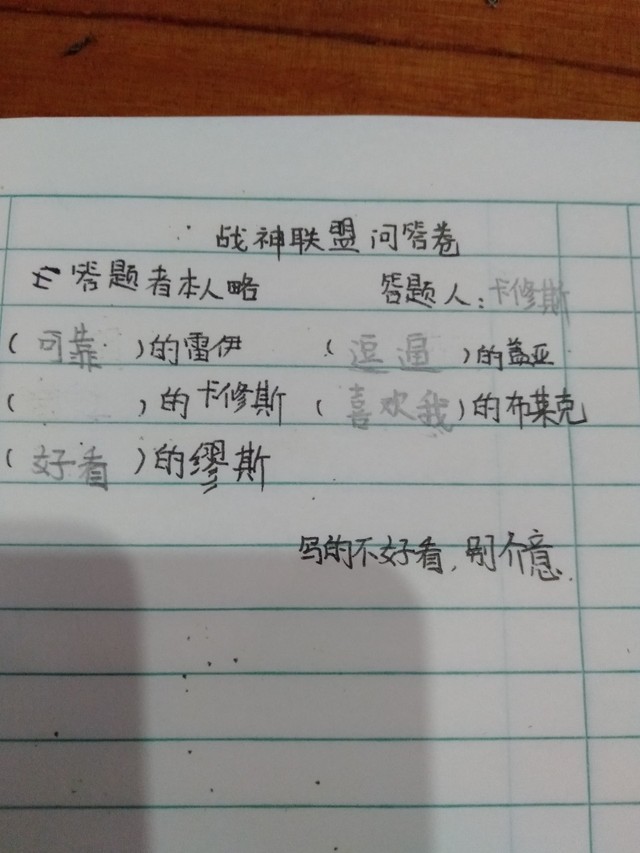 战神联盟问答卷
答题者本人略 答题人：卡修斯
（可靠）的雷伊 （逗逼）的盖亚
（ ）的卡修斯 （喜欢我）的布莱克
（好看）的缪斯
写的不好看，别介意.